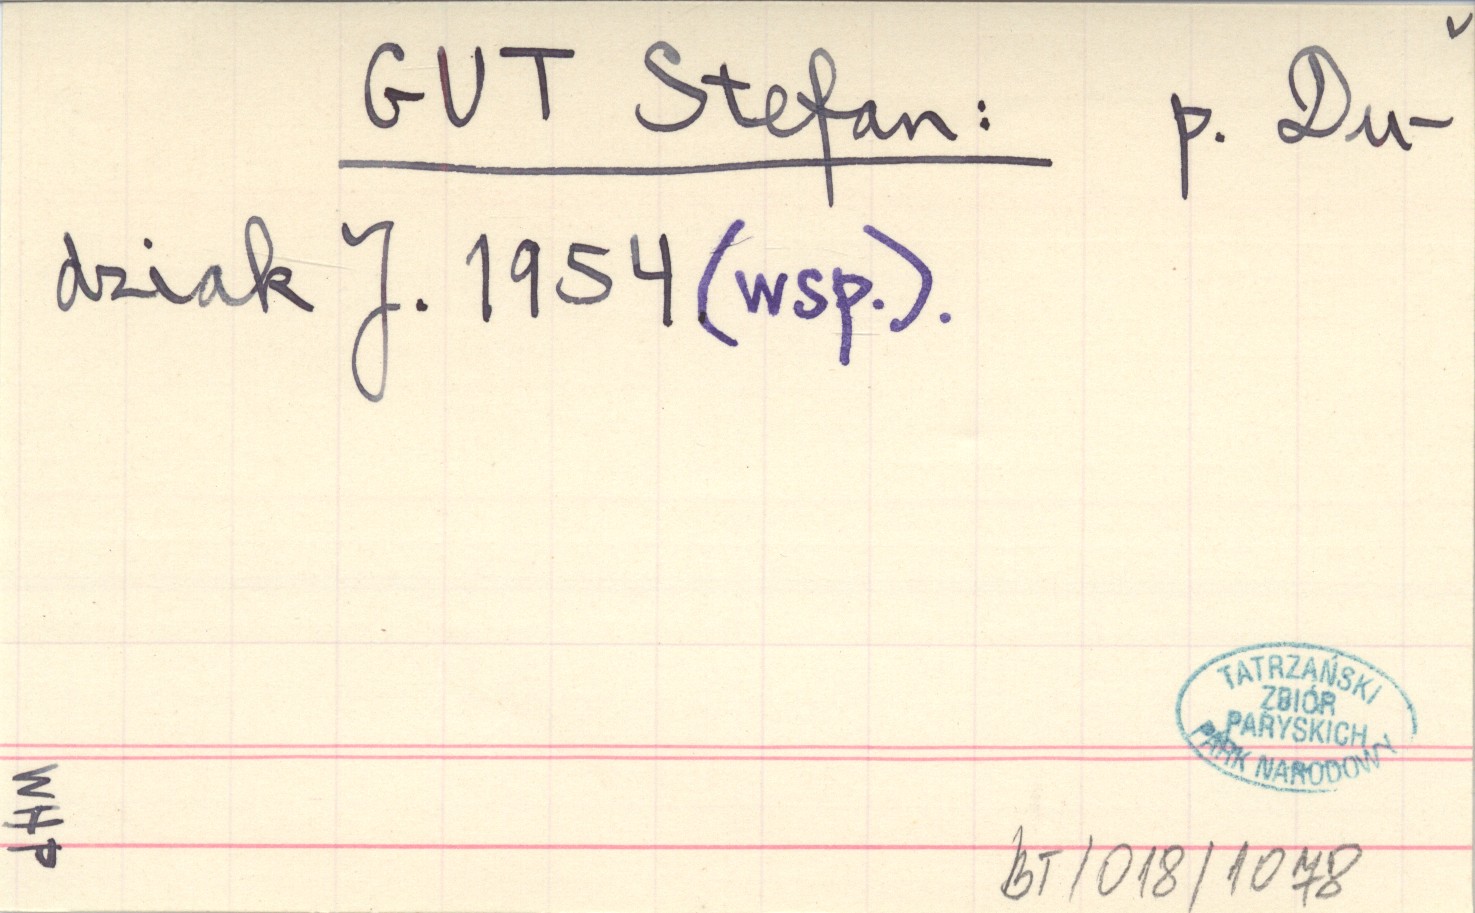 GUT Stefan: p. Du-
dziak J. 1954 (wsp.).
TATRZAŃSKI
ZBIÓR
PARYSKICH
PARK NARODOWY
WHP
BT/018/1078